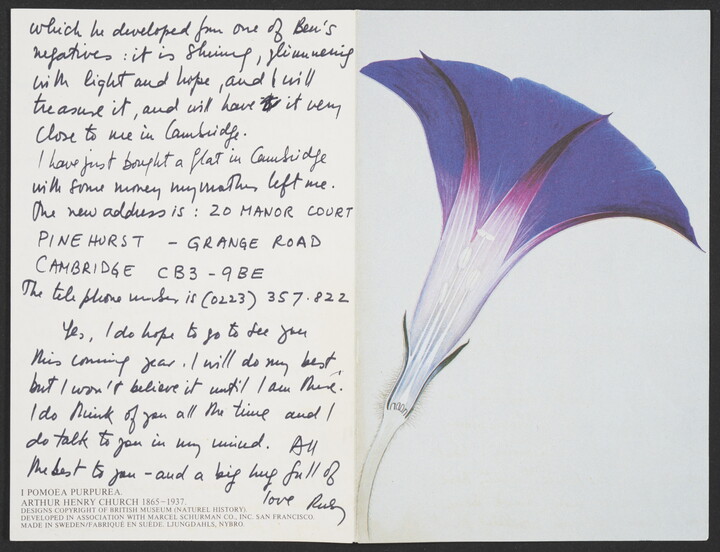 which he developed from one of Ben's
negatives : it is shining, glimmering
with light and hope, and I will
treasure it, and will have it very
close to me in Cambridge.
I have just bought a flat in Cambridge
with some money my mother left me.
The new address is : 20 MANOR COURT
PINEHURST - GRANGE ROAD
CAMBRIDGE CB3-9BE
The telephone number is (0223) 357.822
Yes, I do hope to go to see you
this coming year. I will do my best,
but I won't believe it until I am there.
I do think of you all the time and I
do talk to you in my mind. All
the best to you - and a big hug full of
love Ruby
I POMOEA PURPUREA.
ARTHUR HENRY CHURCH 1865-1937.
DESIGNS COPYRIGHT OF BRITISH MUSEUM (NATUREL HISTORY).
DEVELOPED IN ASSOCIATION WITH MARCEL SCHURMAN CO., INC. SAN FRANCISCO.
MADE IN SWEDEN/FABRIQUE EN SUEDE. LJUNGDAHLS, NYBRO.